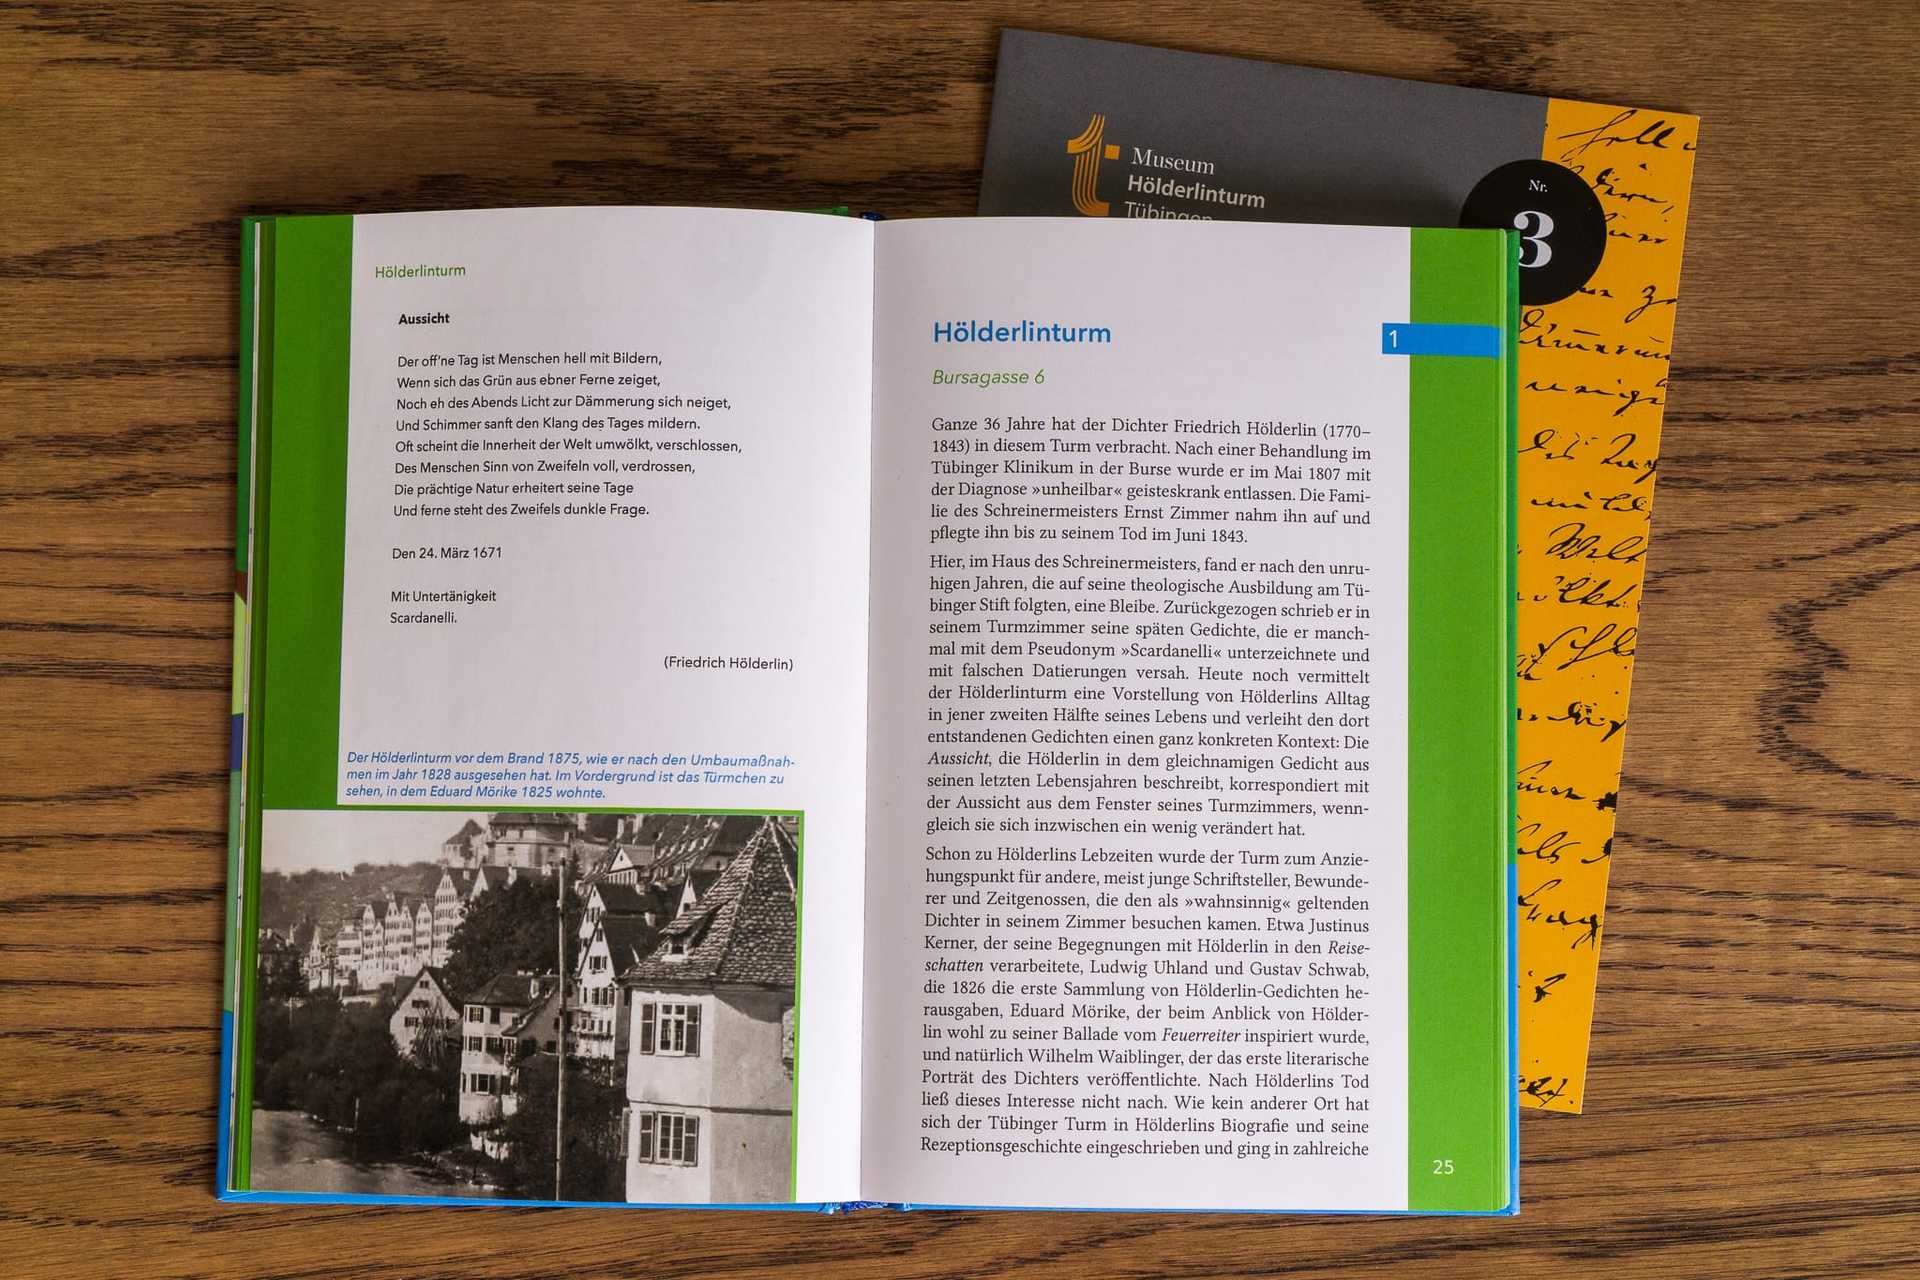 Museum
Hölderlinturm
Tübingen
Nr.
3
Hölderlinturm
Aussicht
Der off’ne Tag ist Menschen hell mit Bildern,
Wenn sich das Grün aus ebner Ferne zeiget,
Noch eh des Abends Licht zur Dämmerung sich neiget,
Und Schimmer sanft den Klang des Tages mildern.
Oft scheint die Innerheit der Welt umwölkt, verschlossen,
Des Menschen Sinn von Zweifeln voll, verdrossen,
Die prächtige Natur erheitert seine Tage
Und ferne steht des Zweifels dunkle Frage.
Den 24. März 1671
Mit Untertänigkeit
Scardanelli.
(Friedrich Hölderlin)
Der Hölderlinturm vor dem Brand 1875, wie er nach den Umbaumaßnah-
men im Jahr 1828 ausgesehen hat. Im Vordergrund ist das Türmchen zu
sehen, in dem Eduard Mörike 1825 wohnte.
Hölderlinturm
1
Bursagasse 6
Ganze 36 Jahre hat der Dichter Friedrich Hölderlin (1770–
1843) in diesem Turm verbracht. Nach einer Behandlung im
Tübinger Klinikum in der Burse wurde er im Mai 1807 mit
der Diagnose »unheilbar« geisteskrank entlassen. Die Fami-
lie des Schreinermeisters Ernst Zimmer nahm ihn auf und
pflegte ihn bis zu seinem Tod im Juni 1843.
Hier, im Haus des Schreinermeisters, fand er nach den unru-
higen Jahren, die auf seine theologische Ausbildung am Tü-
binger Stift folgten, eine Bleibe. Zurückgezogen schrieb er in
seinem Turmzimmer seine späten Gedichte, die er manch-
mal mit dem Pseudonym »Scardanelli« unterzeichnete und
mit falschen Datierungen versah. Heute noch vermittelt
der Hölderlinturm eine Vorstellung von Hölderlins Alltag
in jener zweiten Hälfte seines Lebens und verleiht den dort
entstandenen Gedichten einen ganz konkreten Kontext: Die
Aussicht, die Hölderlin in dem gleichnamigen Gedicht aus
seinen letzten Lebensjahren beschreibt, korrespondiert mit
der Aussicht aus dem Fenster seines Turmzimmers, wenn-
gleich sie sich inzwischen ein wenig verändert hat.
Schon zu Hölderlins Lebzeiten wurde der Turm zum Anzie-
hungspunkt für andere, meist junge Schriftsteller, Bewunde-
rer und Zeitgenossen, die den als »wahnsinnig« geltenden
Dichter in seinem Zimmer besuchen kamen. Etwa Justinus
Kerner, der seine Begegnungen mit Hölderlin in den Reise-
schatten verarbeitete, Ludwig Uhland und Gustav Schwab,
die 1826 die erste Sammlung von Hölderlin-Gedichten he-
rausgaben, Eduard Mörike, der beim Anblick von Hölder-
lin wohl zu seiner Ballade vom Feuerreiter inspiriert wurde,
und natürlich Wilhelm Waiblinger, der das erste literarische
Porträt des Dichters veröffentlichte. Nach Hölderlins Tod
ließ dieses Interesse nicht nach. Wie kein anderer Ort hat
sich der Tübinger Turm in Hölderlins Biografie und seine
Rezeptionsgeschichte eingeschrieben und ging in zahlreiche
25